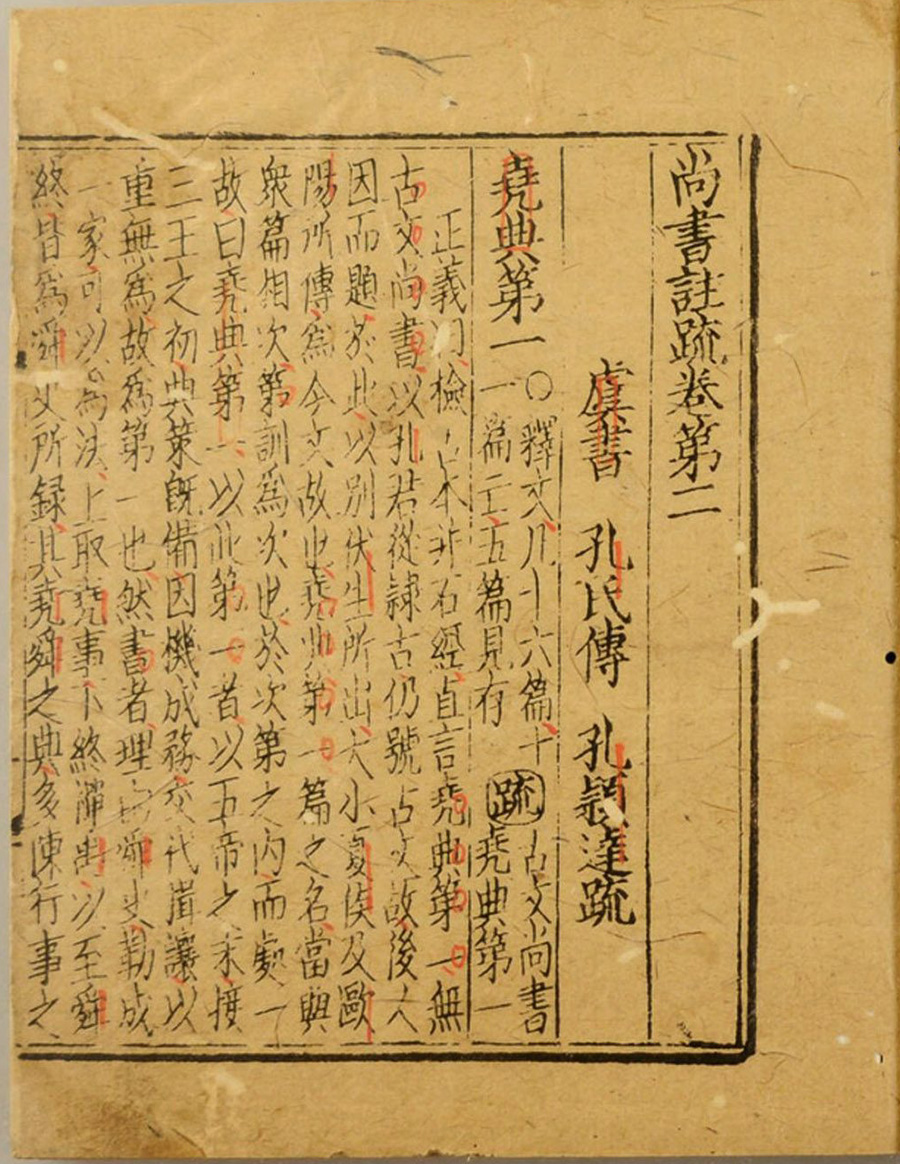 尚書註疏卷第二
虞書　孔氏傳　孔穎達疏
堯典第一　○釋文凡十六篇十
一篇亡五篇見有　疏　古文尚書
堯典第一
正義曰檢古本并石經直言堯典第一無
古文尚書以孔君從隸古仍號古文故後人
因而題於此以別伏生所出大小夏侯及歐
陽所傳爲今文故也堯典第一篇之名當與
衆篇相次第訓爲次也於次第之內而處一
故曰堯典第一以此第一者以五帝之末接
三王之初典策既備因機成務交代揖讓以
重無爲故爲第一也然書者理由舜史勒成
一家可以爲法上取堯事下終禪禹以至舜
終皆爲舜史所録其堯舜之典多陳行事之